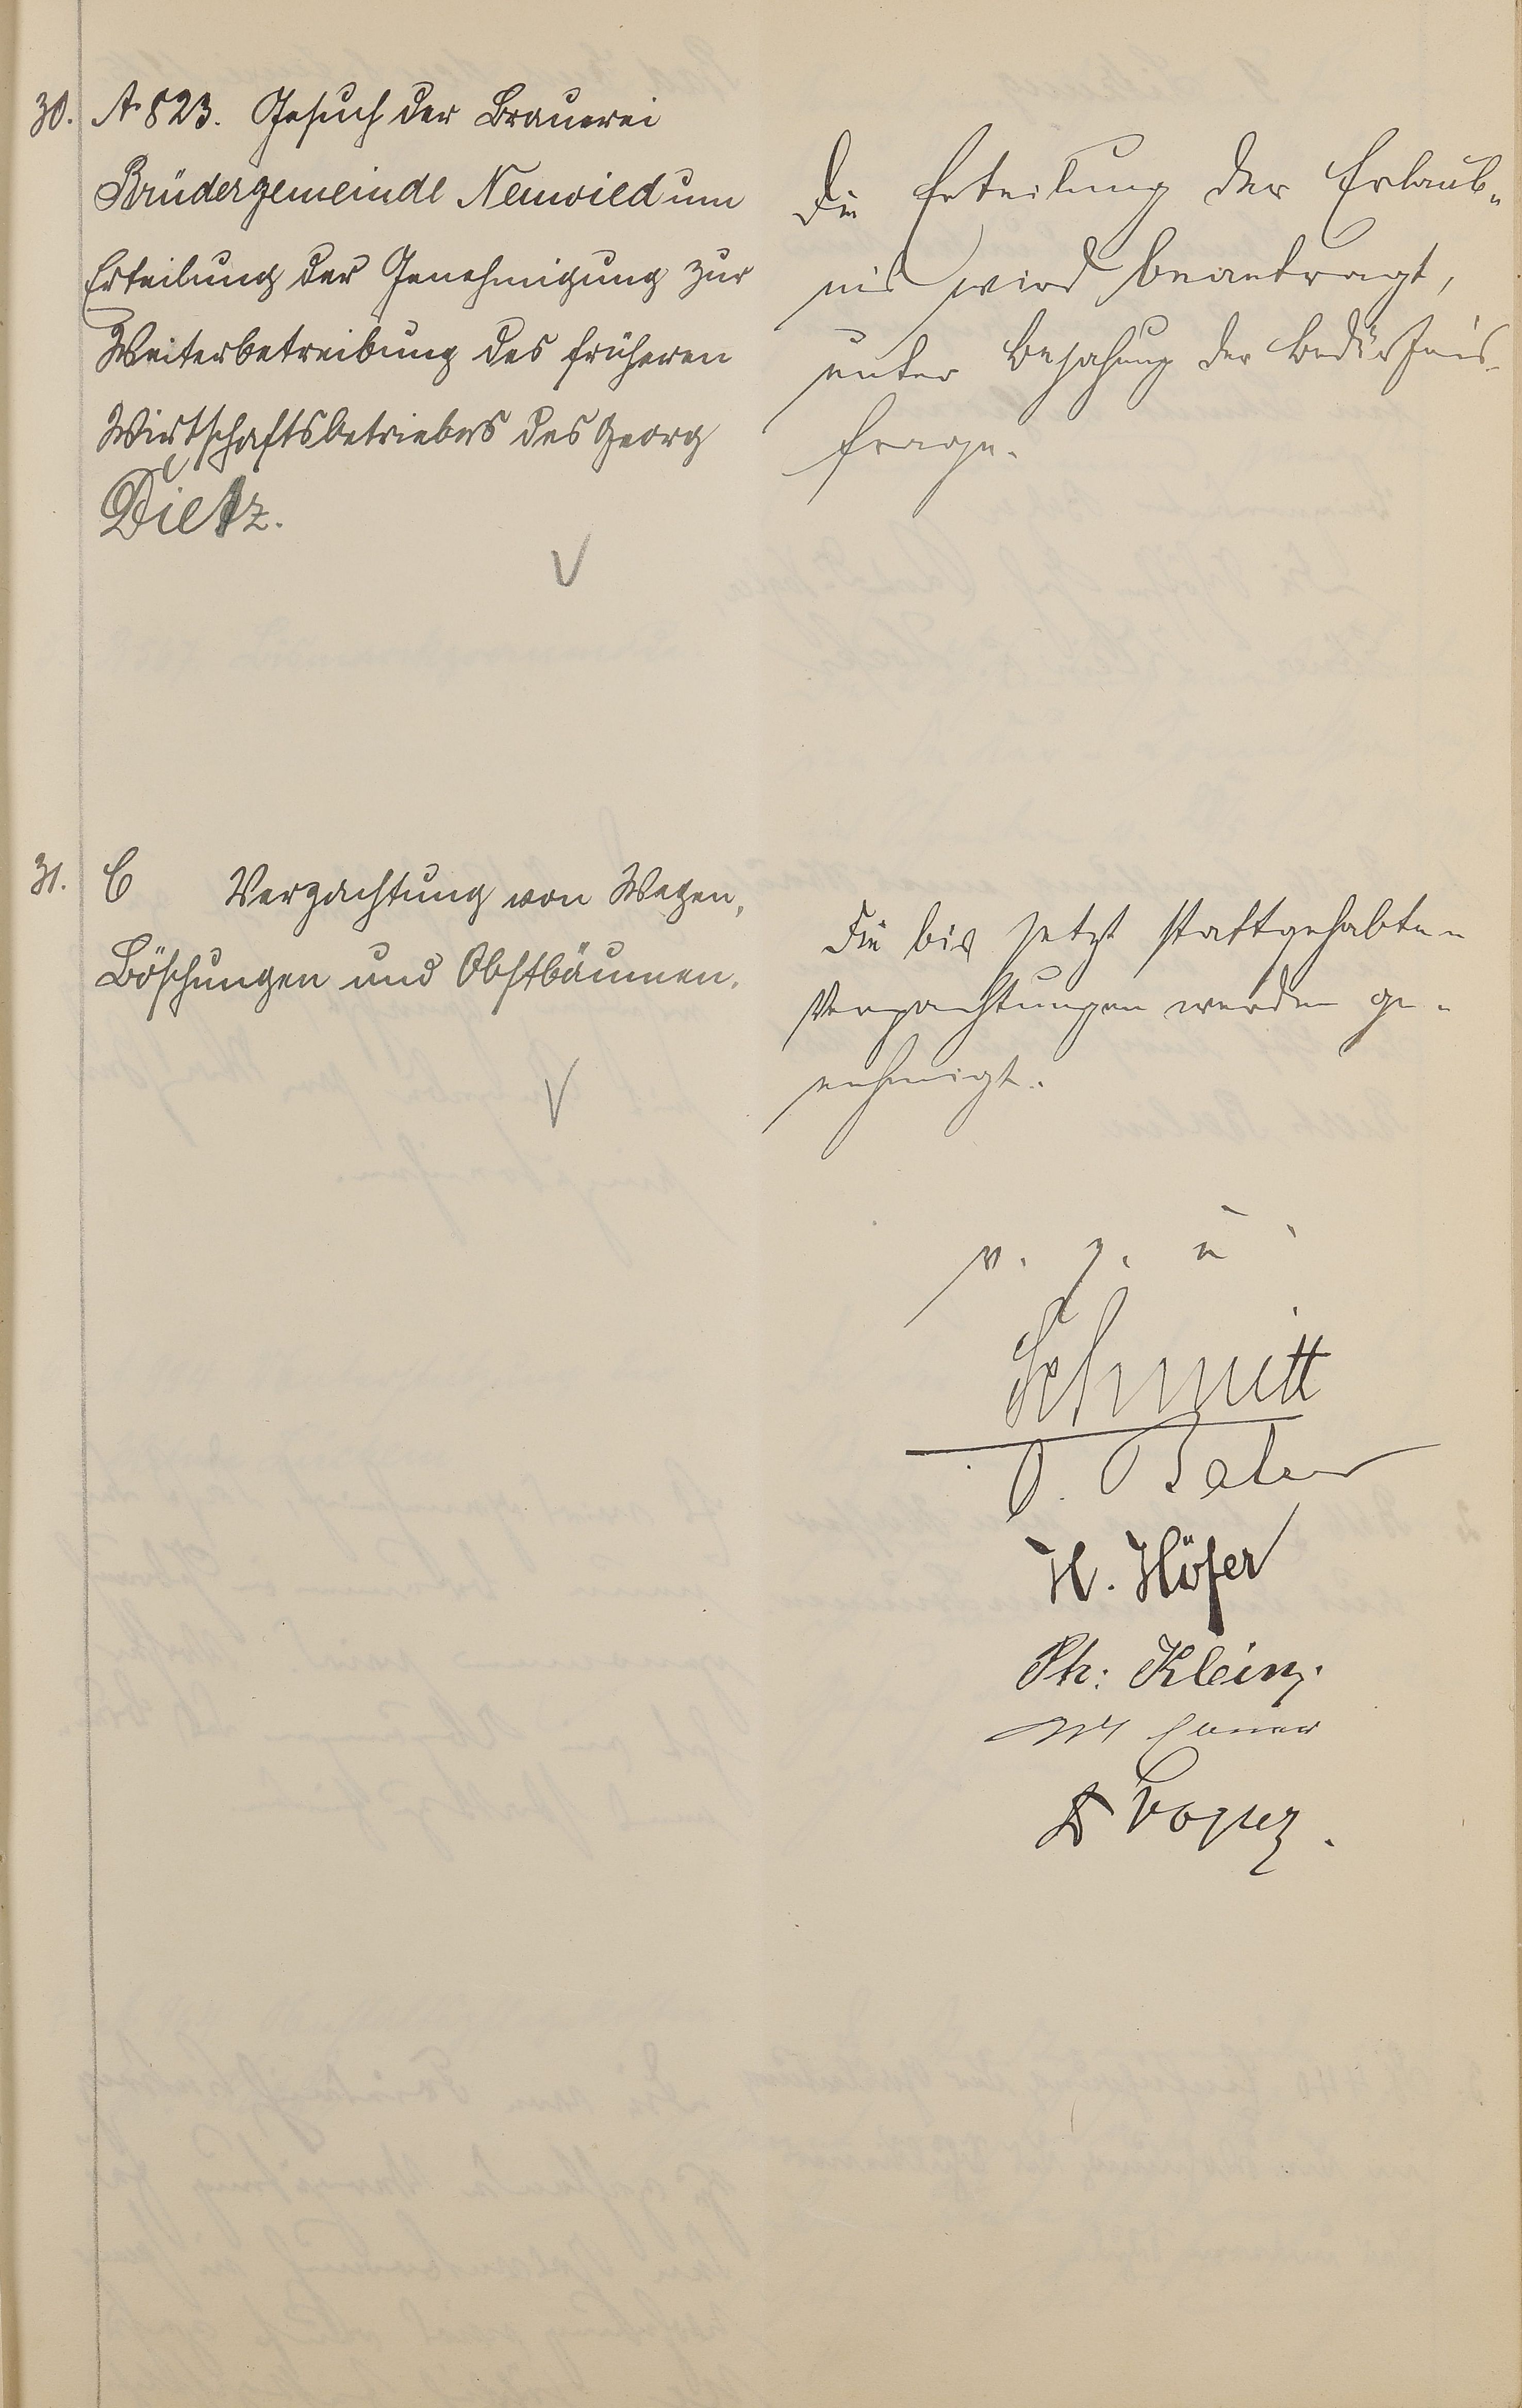 30. A. 823. Gesuch der Brauerei
Brüdergemeinde Neuwied um
Erteilung der Genehmigung zur
Weiterbetreibung des früheren
Wirtschaftsbetriebes des Georg
Dietz.
Die Erteilung der Erlaub-
nis wird beantragt,
unter Bejahung der Bedürfnis-
frage.
31. C Verpachtung von Wegen,
Böschungen und Obstbäumen.
Die bis jetzt stattgehabten
Verpachtungen werden ge-
nehmigt.
v. g. u.
Schmitt
H. Höfer
Ph: Klein